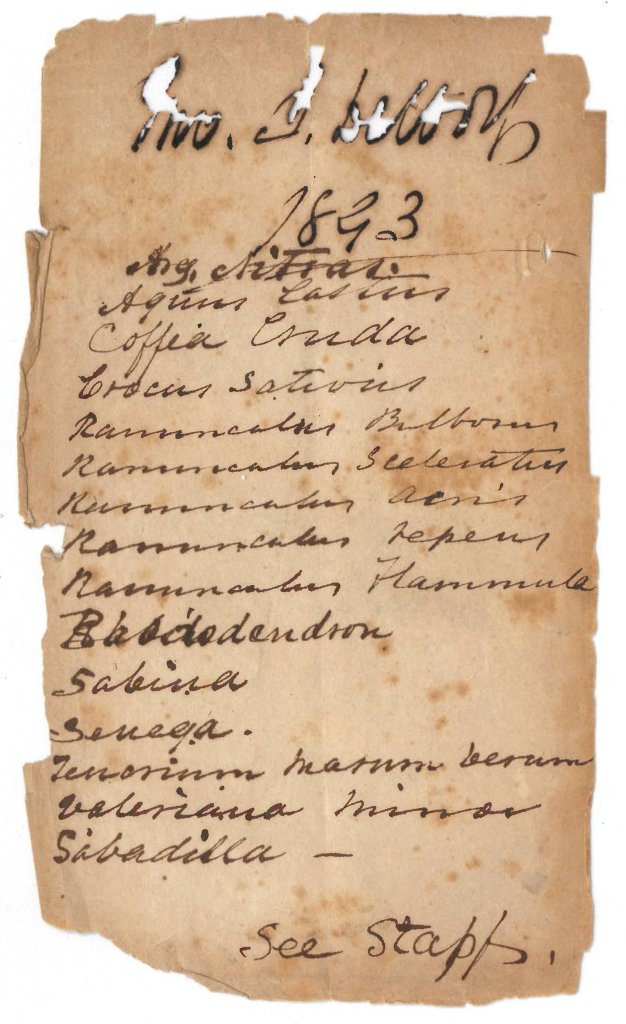 Jno. J. DeWolf
1893
Arg. Nitras.
Agnus Castus
Coffea Cruda
Crocus Sativus
Ranunculus Bulbosus
Ranunculus Sceleratus
Ranunculus acris
Ranunculus repens
Ranunculus Flammula
Rhododendron
Sabina
Senega.
Teucrium Marum Verum
Valeriana Minor
Sabadilla —
See Stapf.